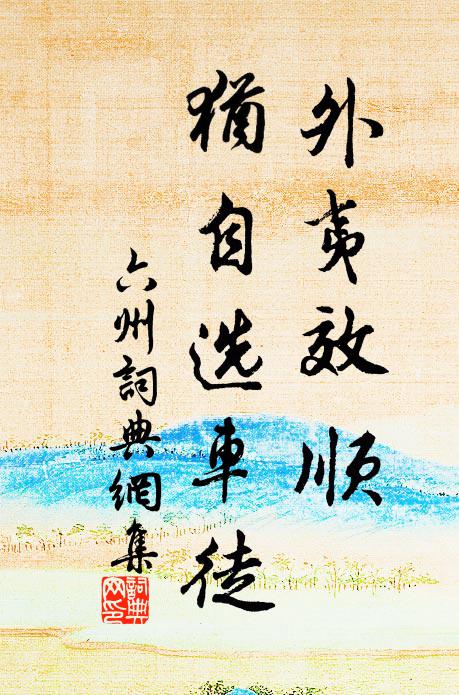 外夷效順
猶自选車徒
六州詞典網集
詞典